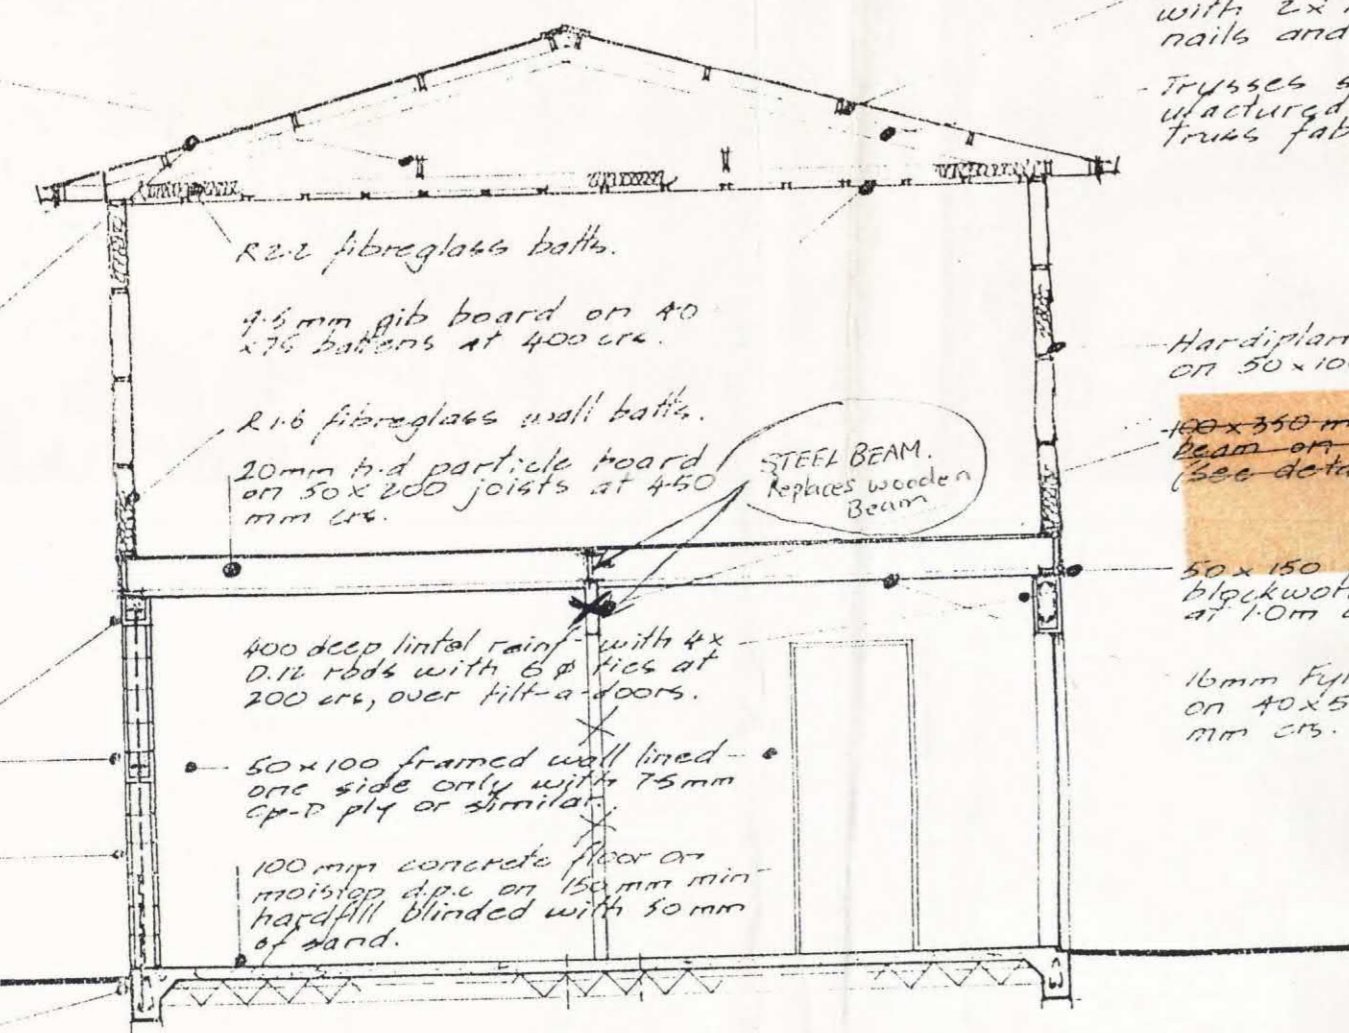 with 2x
nails and
Trusses s
ufactured
truss fab
R2.2 fibreglass batts.
9.5mm gib board on 40
x75 battens at 400 crs.
R1.6 fibreglass wall batts.
20mm h.d particle board
on 50x200 joists at 450
mm crs.
STEEL BEAM.
Replaces wooden
Beam
Hardiplan
on 50x100
100x350 m
beam on
(see deta
50x150
blockwor
at 1.0m
16mm Fyr
on 40x5
mm crs.
400 deep lintel reinf- with 4x
D.12 rods with 6ø ties at
200 crs, over tilt-a-doors.
50x100 framed wall lined
one side only with 7.5mm
Cp-D ply or similar.
100mm concrete floor on
moistop d.p.c on 150mm min-
hardfill blinded with 50mm
of sand.